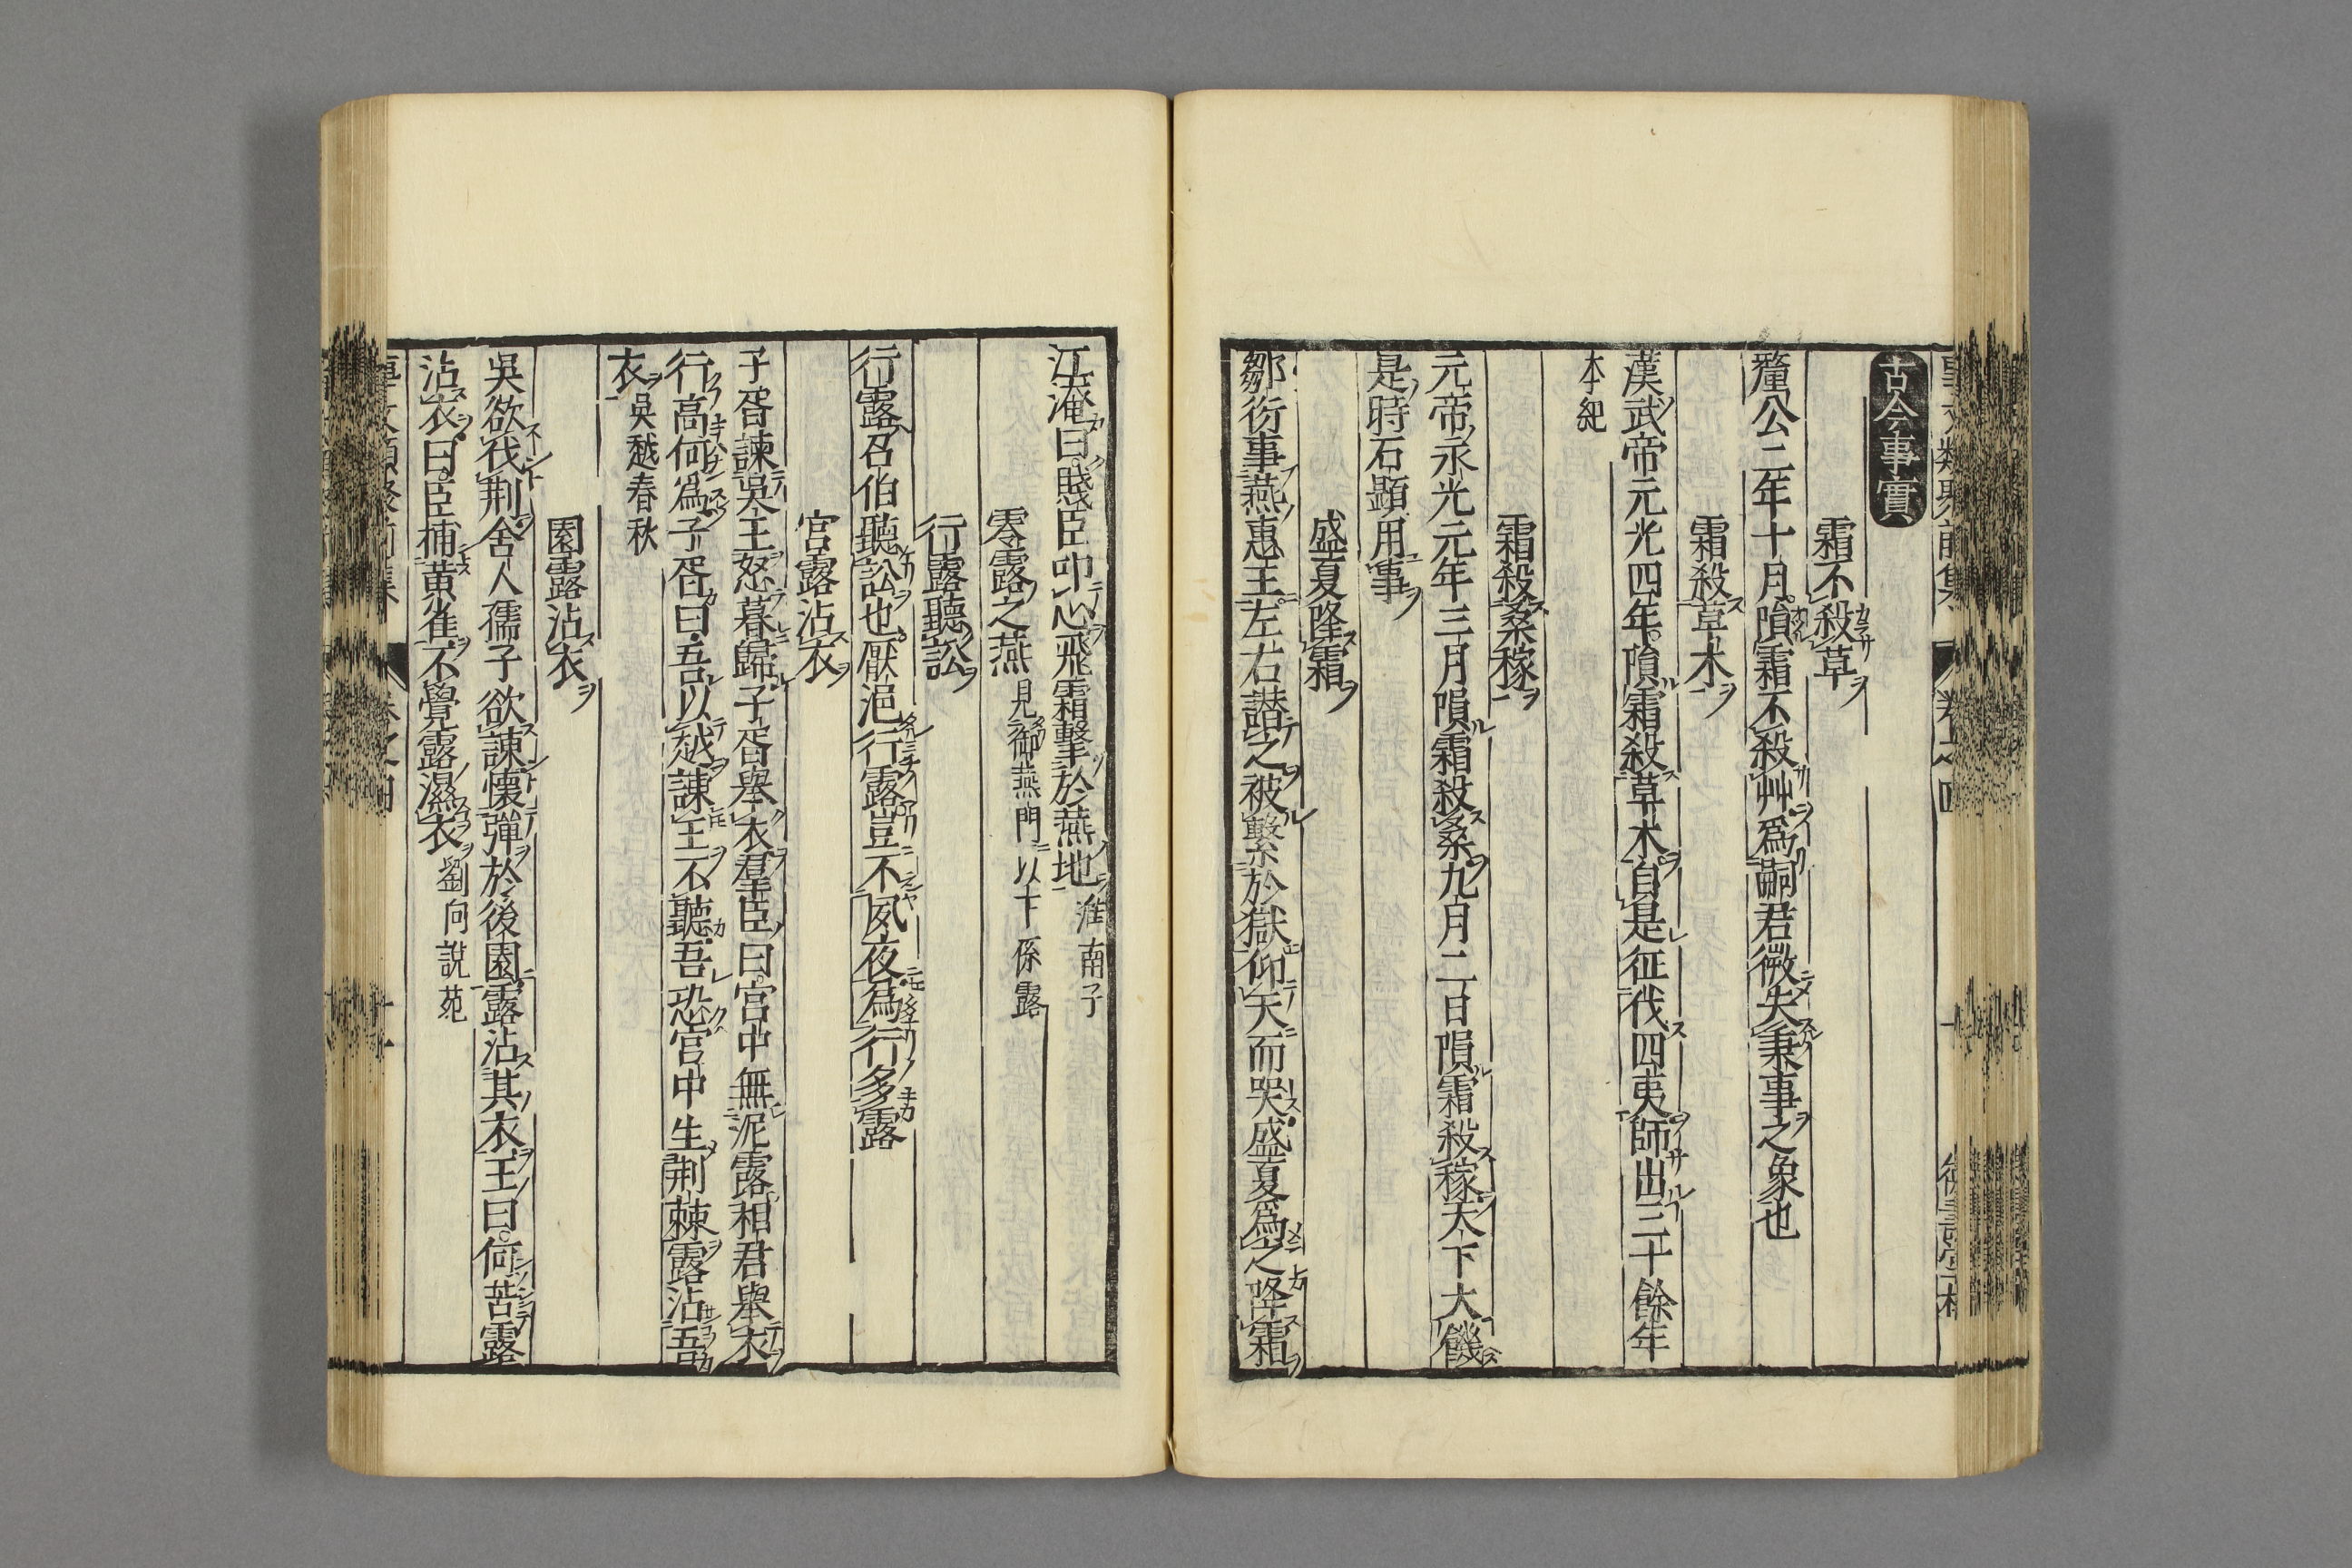 古今事實
霜不殺草
釐公二年十月隕霜不殺艸爲嗣君微失秉事之象也
霜殺草木
漢武帝元光四年隕霜殺草木自是征伐四夷師出三十餘年
本紀
霜殺桑稼
元帝永光元年三月隕霜殺桑九月二日隕霜殺稼天下大饑
是時石顯用事
盛夏隆霜
鄒衍事燕惠王左右譖之被繫於獄仰天而哭盛夏爲之降霜
江淹曰賤臣叩心飛霜擊於燕地淮南子
零露之燕見御燕門以下係露
行露聽訟
行露召伯聽訟也厭浥行露豈不夙夜爲行多露
宮露沾衣
子胥諫吳王怒暮歸子胥舉衣羣臣曰宮中無泥露相君舉衣
行高何爲子胥曰吾以越諫王不聽吾恐宮中生荆棘露沾吾
衣吳越春秋
園露沾衣
吳欲伐荆舍人孺子欲諫懷彈於後園露沾其衣王曰何苦露
沾衣曰臣捕黃雀不覺露濕衣劉向說苑